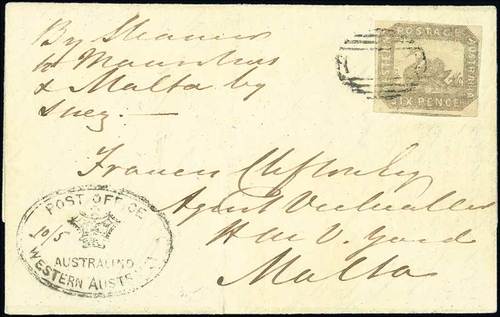 By Steamer
to Mauritius
& Malta by
Suez —
POSTAGE
WESTERN AUSTRALIA
SIX PENCE
Francis
Agent Victualler
H M V. Yard
Malta
POST OFFICE
10/5
AUSTRALIND
WESTERN AUST